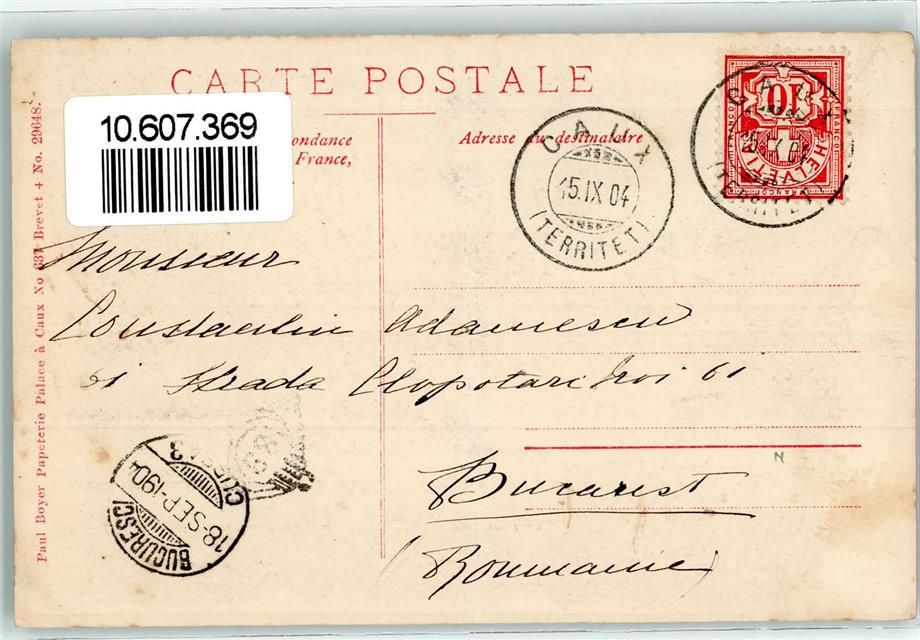 CARTE POSTALE
10.607.369
ondance
France,
Adresse du destinataire
CAUX
15.IX 04
(TERRITET)
10
FRANCO
HELVETIA
FRANCO
CAUX
15.IX 04
(TERRITET)
Monsieur
Constantin Adamescu
61 Strada Clopotari noi 61
Bucarest
Roumanie
N
88
18-SEP-190
BUCURESCI
Paul Boyer Papeterie Palace à Caux No 631 Brevet + No. 29648.